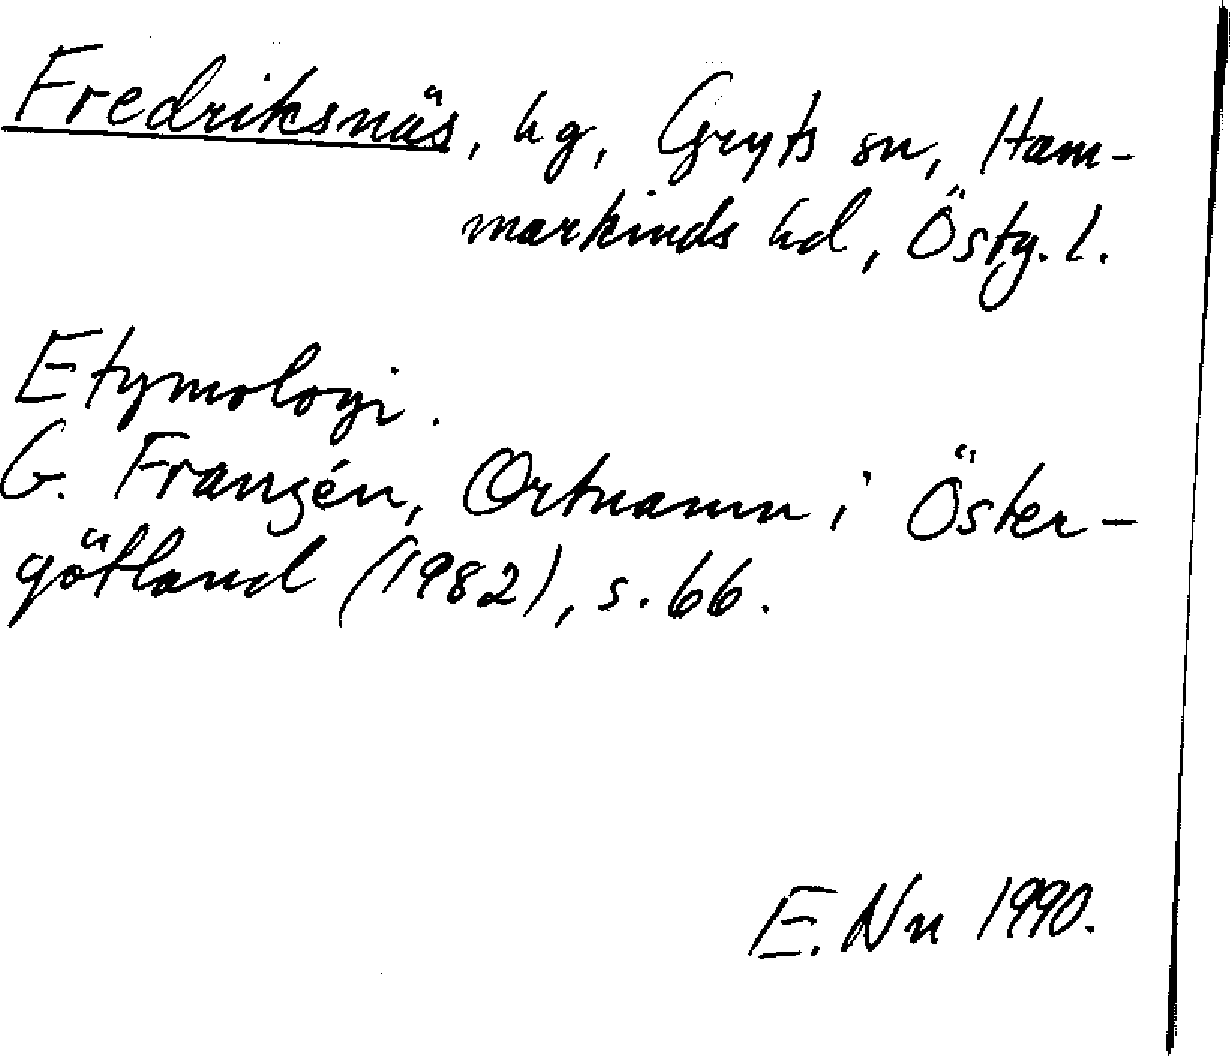 Fredriksnäs, hg, Gryts sn, Ham-
markinds hd, Östg. l.
Etymologi.
G. Franzén, Ortnamn i Öster-
götland (1982), s. 66.
E. Nn 1990.